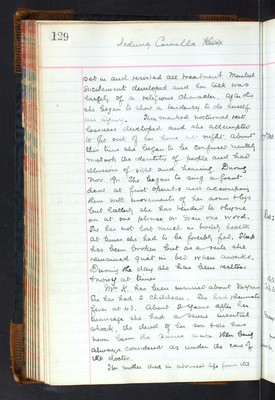 129
set in and resisted all treatment. Mental
excitement developed and her talk was
largely of a religious character, after this
she began to show a tendency to do herself
an injury. Then marked nocturnal rest-
lessness developed and she attempted
to get out of her home at night. About
this time she began to be confused mentally
mistook the identity of people and had
illusions of sight and hearing. During
Nov. 19. She began to sing a great
deal at first operatic and accompany
them with movements of her arms & legs
but latterly she has tended to rhyme
on at one phrase or even one word.
She has not lost much in bodily health
at times she had to be forcibly fed. Sleep
has been broken but as a rule she
remained quiet in bed when awake.
During the day she has been restless
& noisy at times
Mrs K. has been married about years
She has had 2 children. She had rheumatic
fever at 43. About 2 years after her
marriage she had a severe mental
shock, the death of her son & she has
never been the same since then being
always considered as under the care of
the doctor.
Her mother died in advanced life from the